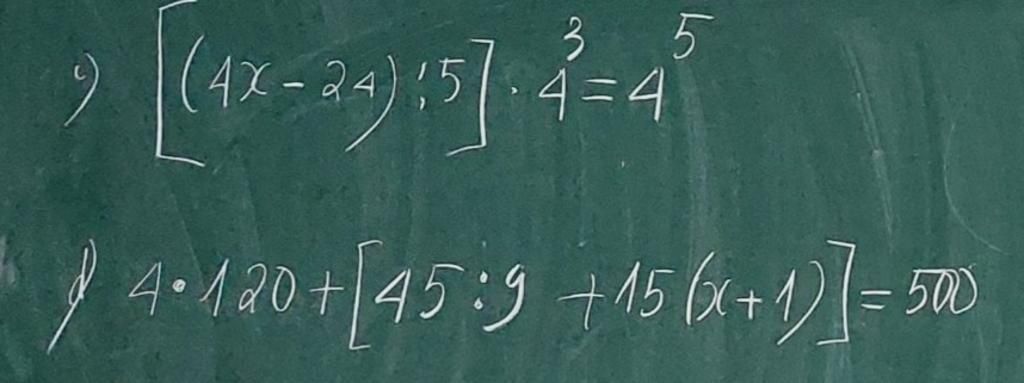 c) [(4x - 24) : 5] . 4³ = 4⁵
d) 4 • 120 + [45 : 9 + 15 (x + 1)] = 500